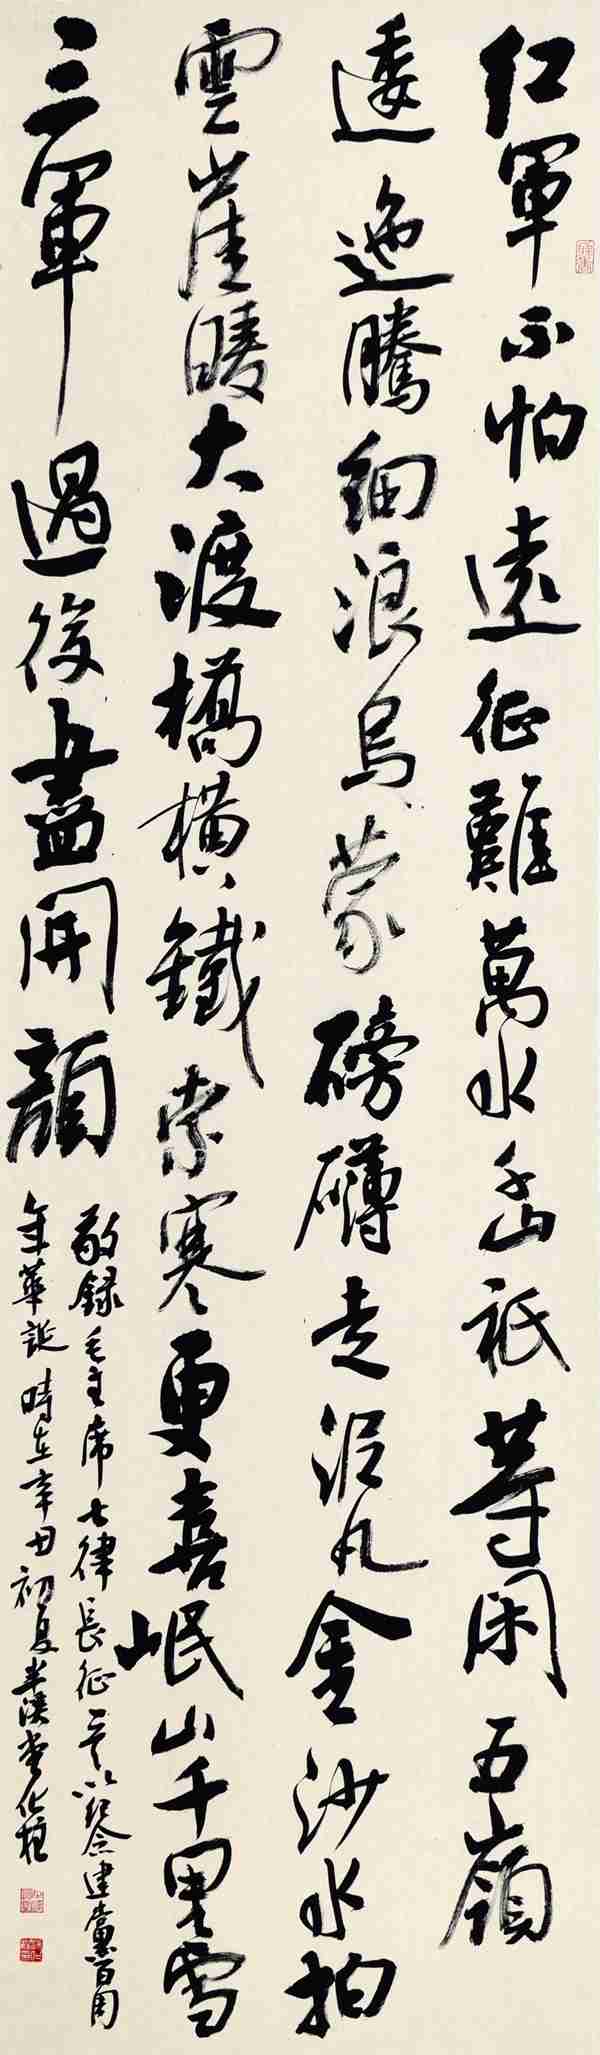 红軍不怕遠征難萬水千山衹等閑五嶺
逶迤騰細浪烏蒙磅礴走泥丸金沙水拍
雲崖暖大渡橋橫鐵索寒更喜岷山千里雪
三軍過後盡開顔
敬録毛主席七律長征一首以紀念建黨百周
年華誕時在辛丑初夏